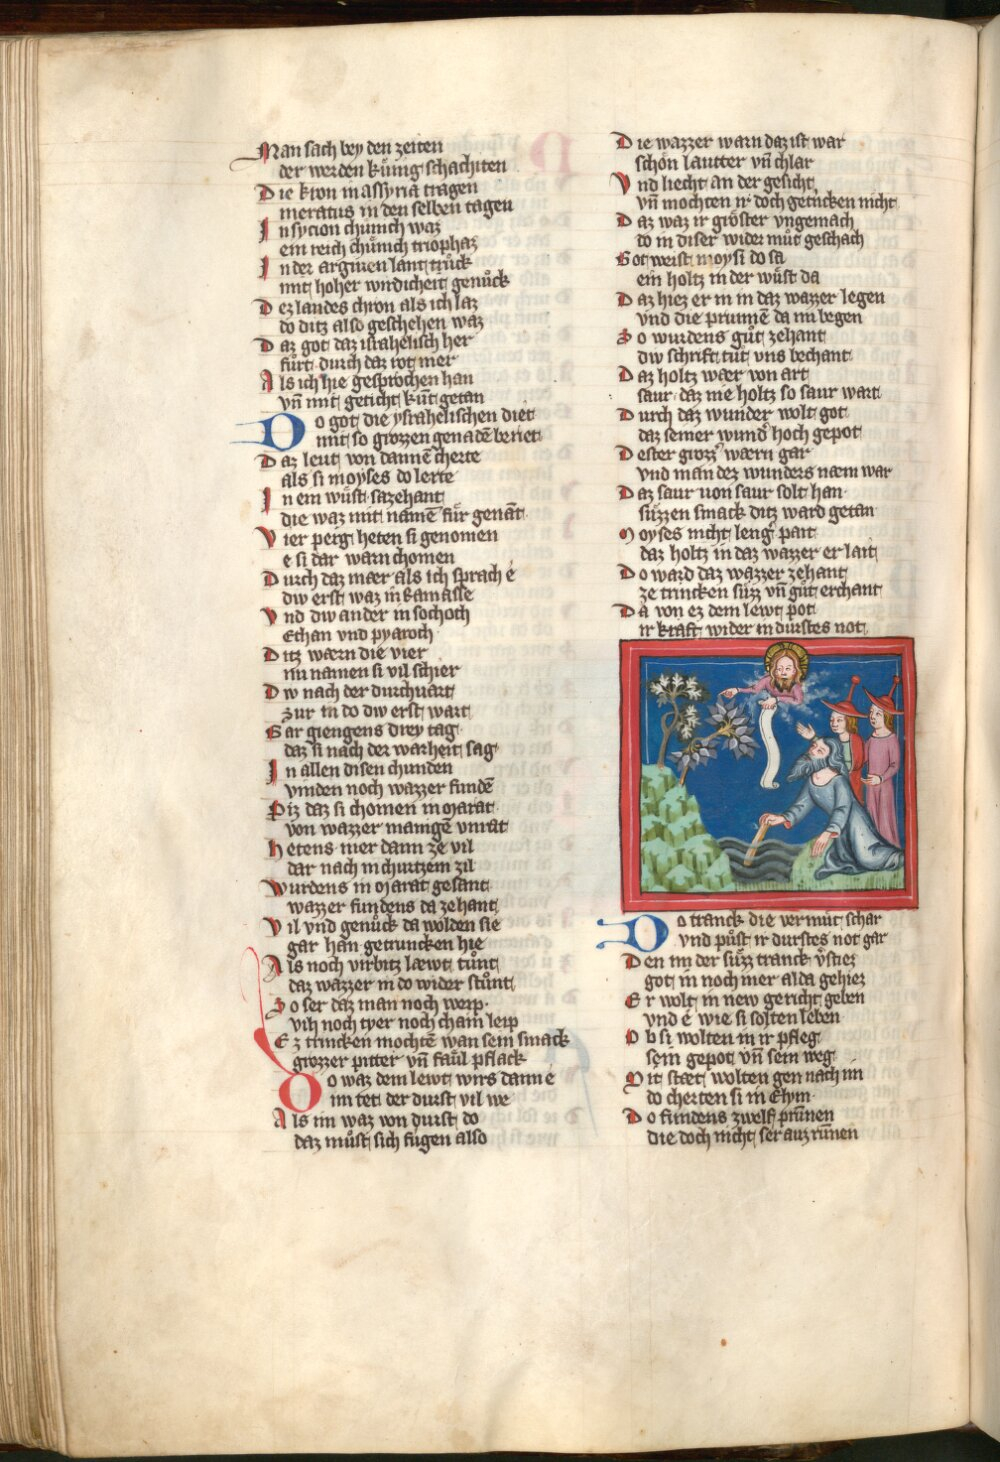 Man sach bey den zeiten
der werden kůnig schachiten
Die kron in assyria tragen
meratus in den selben tagen
In sycion chůnich waz
ein reich chůnich triophaz
In der argiuen lant trůck
mit hoher wirdicheit genůck
Dez landes chron als ich laz
do ditz also geschehen waz
Daz got daz israhelisch her
fůrt durch daz rot mer
Als ich hie gesprochen han
vn̄ mit geticht kůnt getan
Do got die ysrahelischen diet
mit so grozzen genadē beriet
Daz leut von dannē cherte
als si moyses do lerte
In ein wůst sazehant
die waz mit namē fůr genāt
Vier perg heten si genomen
e si dar warn chomen
Durch daz mær als ich sprach é
diw erst waz in kamasse
Vnd diw ander in sochoth
Ethan vnd pyaroch
Ditz wærn die vier
nu namen si vil schier
Diw nach der durchuart
zur in do diw erst wart
Gar giengens drey tag
daz si nach der warheit sag
In allen disen chunden
vinden noch wazzer fundē
Piz daz si chomen in marat
von wazzer manigē vnrat
hetens mer dann ze vil
dar nach in churtzem zil
Wurdens in marat gesant
wazzer fundens da zehant
Vil vnd genůck da wolden sie
gar han getruncken hie
Als noch virbitz læwt tůnt
daz wazzer in do wider stůnt
So ser daz man noch werp
vih noch tyer noch cham leip
Ez trincken mochtē wan sein smack
grozzer pitter vn̄ faul pflack
Do waz dem lewt wirs danne
im tet der durst vil we
Als im waz von durst do
daz můst sich fůgen also
Die wazzer warn daz ist war
schön lautter vn̄ chlar
Vnd liecht an der gesicht
vn̄ mochten ir doch getricken nicht
Daz waz ir gröster vngemach
do in diser wider můt geschach
Got weist moysi do sa
ein holtz in der wůst da
Daz hiez er in in daz wazzer legen
vnd die prunnē da mi begen
So wurdens gůt zehant
diw schrift tůt vns bechant
Daz holtz wær von art
saur daz nie holtz so saur wart
Durch daz wunder wolt got
daz seiner wund̾ hoch gepot
Dester grozz̾ wærn gar
vnd man dez wunders næm war
Daz saur von saur solt han
sůzzen smack ditz ward getan
Moyses nicht leng̾ pait
daz holtz in daz wazzer er lait
Do ward daz wazzer zehant
ze trincken sůzz vn̄ gůt erchant
Da von ez dem lewt pot
ir kraft wider in durstes not
Do tranck die vermůt schar
vnd půst ir durstes not gar
Den im der sůzz tranck v̾stiez
got in noch mer alda gehiez
Er wolt in new gericht geben
vnd é wie si solten leben
Ob si wolten in ir pfleg
sein gepot vn̄ sein weg
Mit stæt wolten gen nach im
do cherten si in Elym
Do fundens zwelf prūnen
die doch nicht ser auz rūnen